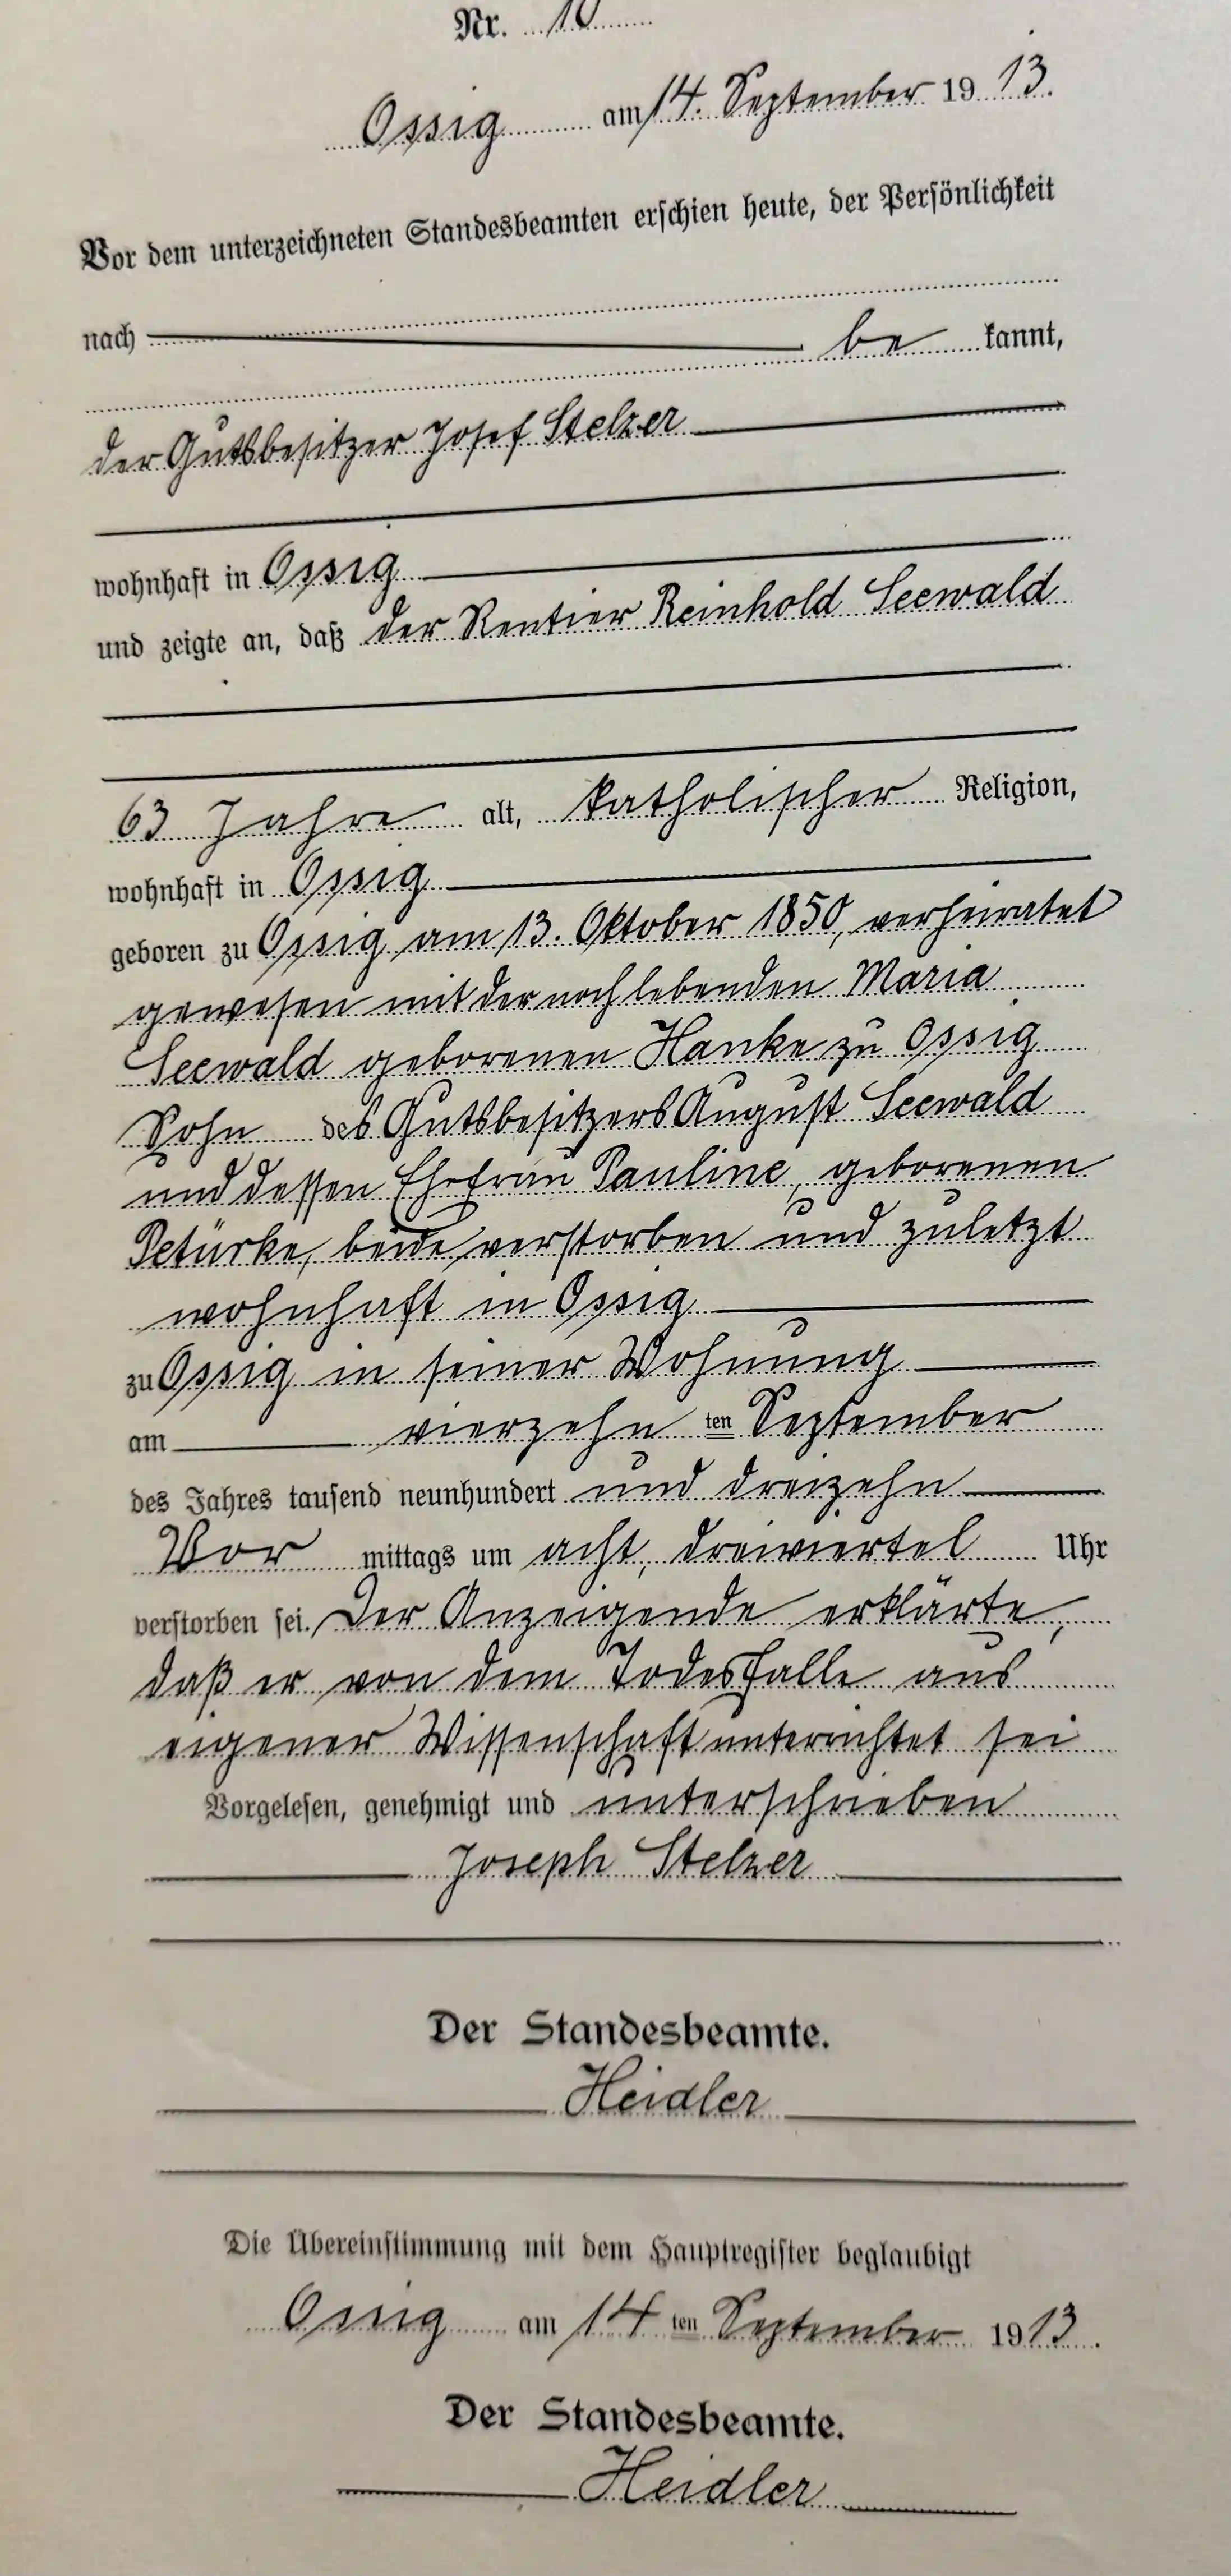 Nr. 10
Ossig am 14. September 1913.
Vor dem unterzeichneten Standesbeamten erschien heute, der Persönlichkeit
nach be kannt,
der Gutsbesitzer Josef Stelzer
wohnhaft in Ossig
und zeigte an, daß der Rentier Reinhold Seewald
63 Jahre alt, katholischer Religion,
wohnhaft in Ossig
geboren zu Ossig am 13. Oktober 1850, verheiratet
gewesen mit der noch lebenden Maria
Seewald geborenen Hanke zu Ossig
Sohn des Gutsbesitzers August Seewald
und dessen Ehefrau Pauline, geborenen
Petürke, beide verstorben und zuletzt
wohnhaft in Ossig
zu Ossig in seiner Wohnung
am vierzehn ten September
des Jahres tausend neunhundert und dreizehn
Vor mittags um acht, dreiviertel Uhr
verstorben sei. Der Anzeigende erklärte,
daß er von dem Todesfalle aus
eigener Wissenschaft unterrichtet sei
Vorgelesen, genehmigt und unterschrieben
Joseph Stelzer
Der Standesbeamte.
Heidler
Die Übereinstimmung mit dem Hauptregister beglaubigt
Ossig am 14 ten September 1913.
Der Standesbeamte.
Heidler